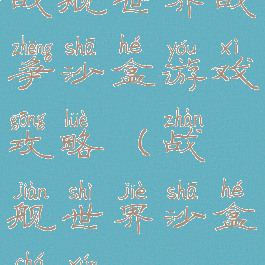 战舰世界战
zhēng shā hé yóu xì
争沙盒游戏
gōng lüè zhàn
攻略（战
jiàn shì jiè shā hé
舰世界沙盒